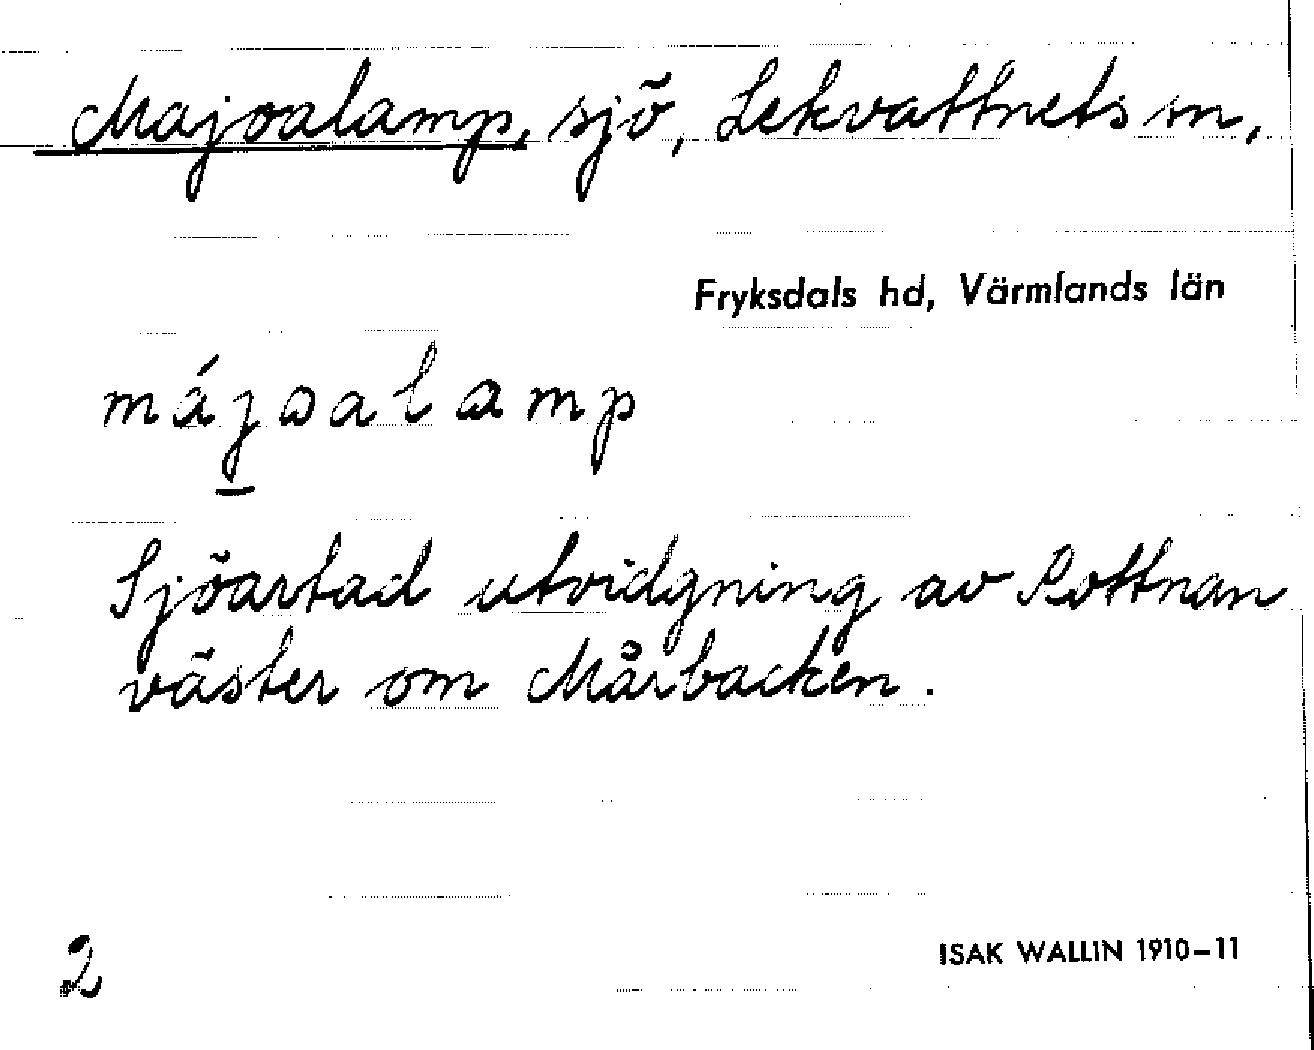 Majoalamp, sjö, Lekvattnets sn,
Fryksdals hd, Värmlands län
májɷalamp
Sjöartad utvidgning av Rottnan
väster om Mårbacken.
2
ISAK WALLIN 1910–11